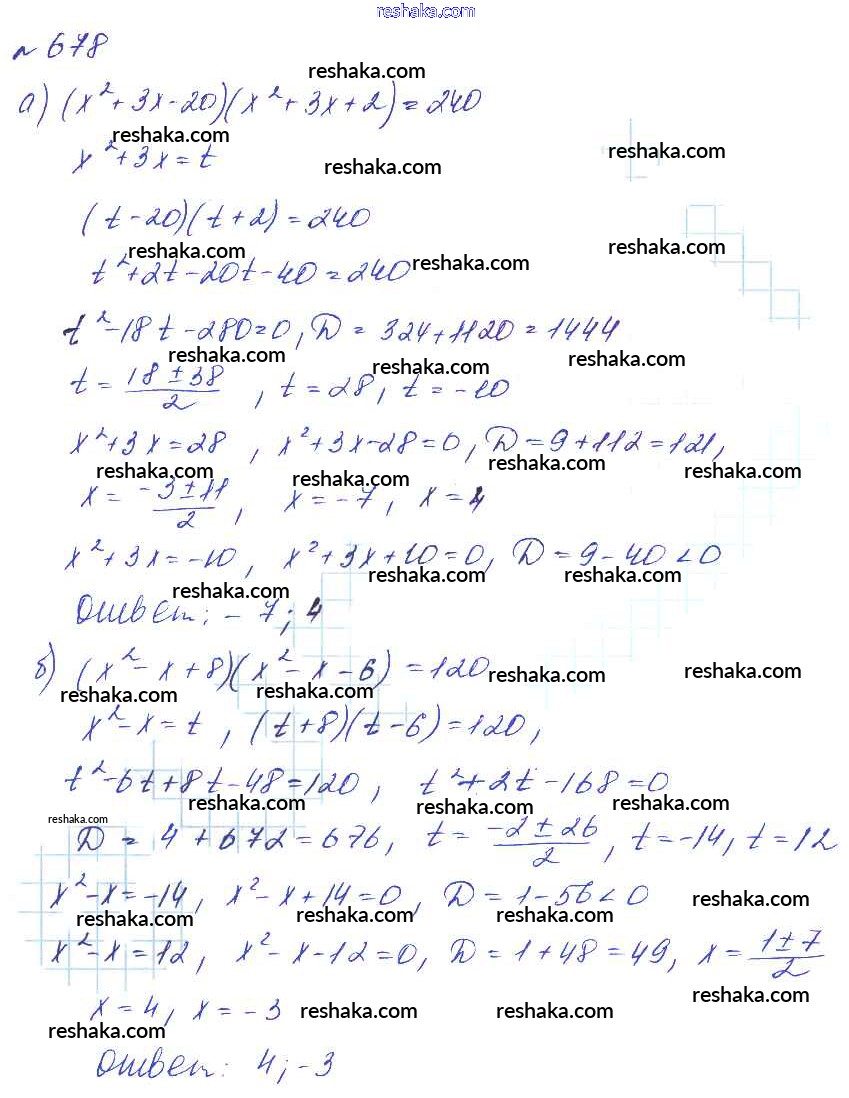 reshaka.com
№ 678
reshaka.com
а) (x² + 3x - 20)(x² + 3x + 2) = 240
reshaka.com reshaka.com
x² + 3x = t reshaka.com
(t - 20)(t + 2) = 240
reshaka.com reshaka.com
t² + 2t - 20t - 40 = 240 reshaka.com
t² - 18t - 280 = 0, D = 324 + 1120 = 1444
reshaka.com reshaka.com reshaka.com
t = (18 ± 38)/2, t = 28, t = -10
x² + 3x = 28, x² + 3x - 28 = 0, D = 9 + 112 = 121,
reshaka.com reshaka.com reshaka.com
x = (-3 ± 11)/2, x = -7, x = 4
x² + 3x = -10, x² + 3x + 10 = 0, D = 9 - 40 < 0
reshaka.com reshaka.com reshaka.com
Ответ: -7; 4
б) (x² - x + 8)(x² - x - 6) = 120 reshaka.com reshaka.com
reshaka.com reshaka.com
x² - x = t, (t + 8)(t - 6) = 120,
t² - 6t + 8t - 48 = 120, t² + 2t - 168 = 0
reshaka.com reshaka.com reshaka.com
reshaka.com
D = 4 + 672 = 676, t = (-2 ± 26)/2, t = -14, t = 12
x² - x = -14, x² - x + 14 = 0, D = 1 - 56 < 0 reshaka.com
reshaka.com reshaka.com reshaka.com
x² - x = 12, x² - x - 12 = 0, D = 1 + 48 = 49, x = (1 ± 7)/2
reshaka.com
x = 4, x = -3 reshaka.com reshaka.com
reshaka.com
Ответ: 4; -3